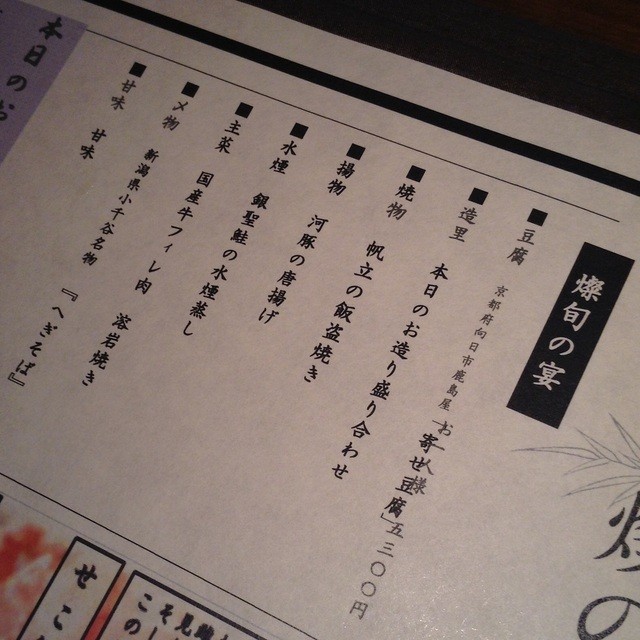 燦旬の宴
お一人様 五三〇〇円
■豆腐 京都府向日市鹿島屋「寄せ豆腐」
■造里 本日のお造り盛り合わせ
■焼物 帆立の飯盗焼き
■揚物 河豚の唐揚げ
■水煙 銀聖鮭の水煙蒸し
■主菜 国産牛フィレ肉 溶岩焼き
■〆物 新潟県小千谷名物 『へぎそば』
■甘味 甘味
本日のお
せこ